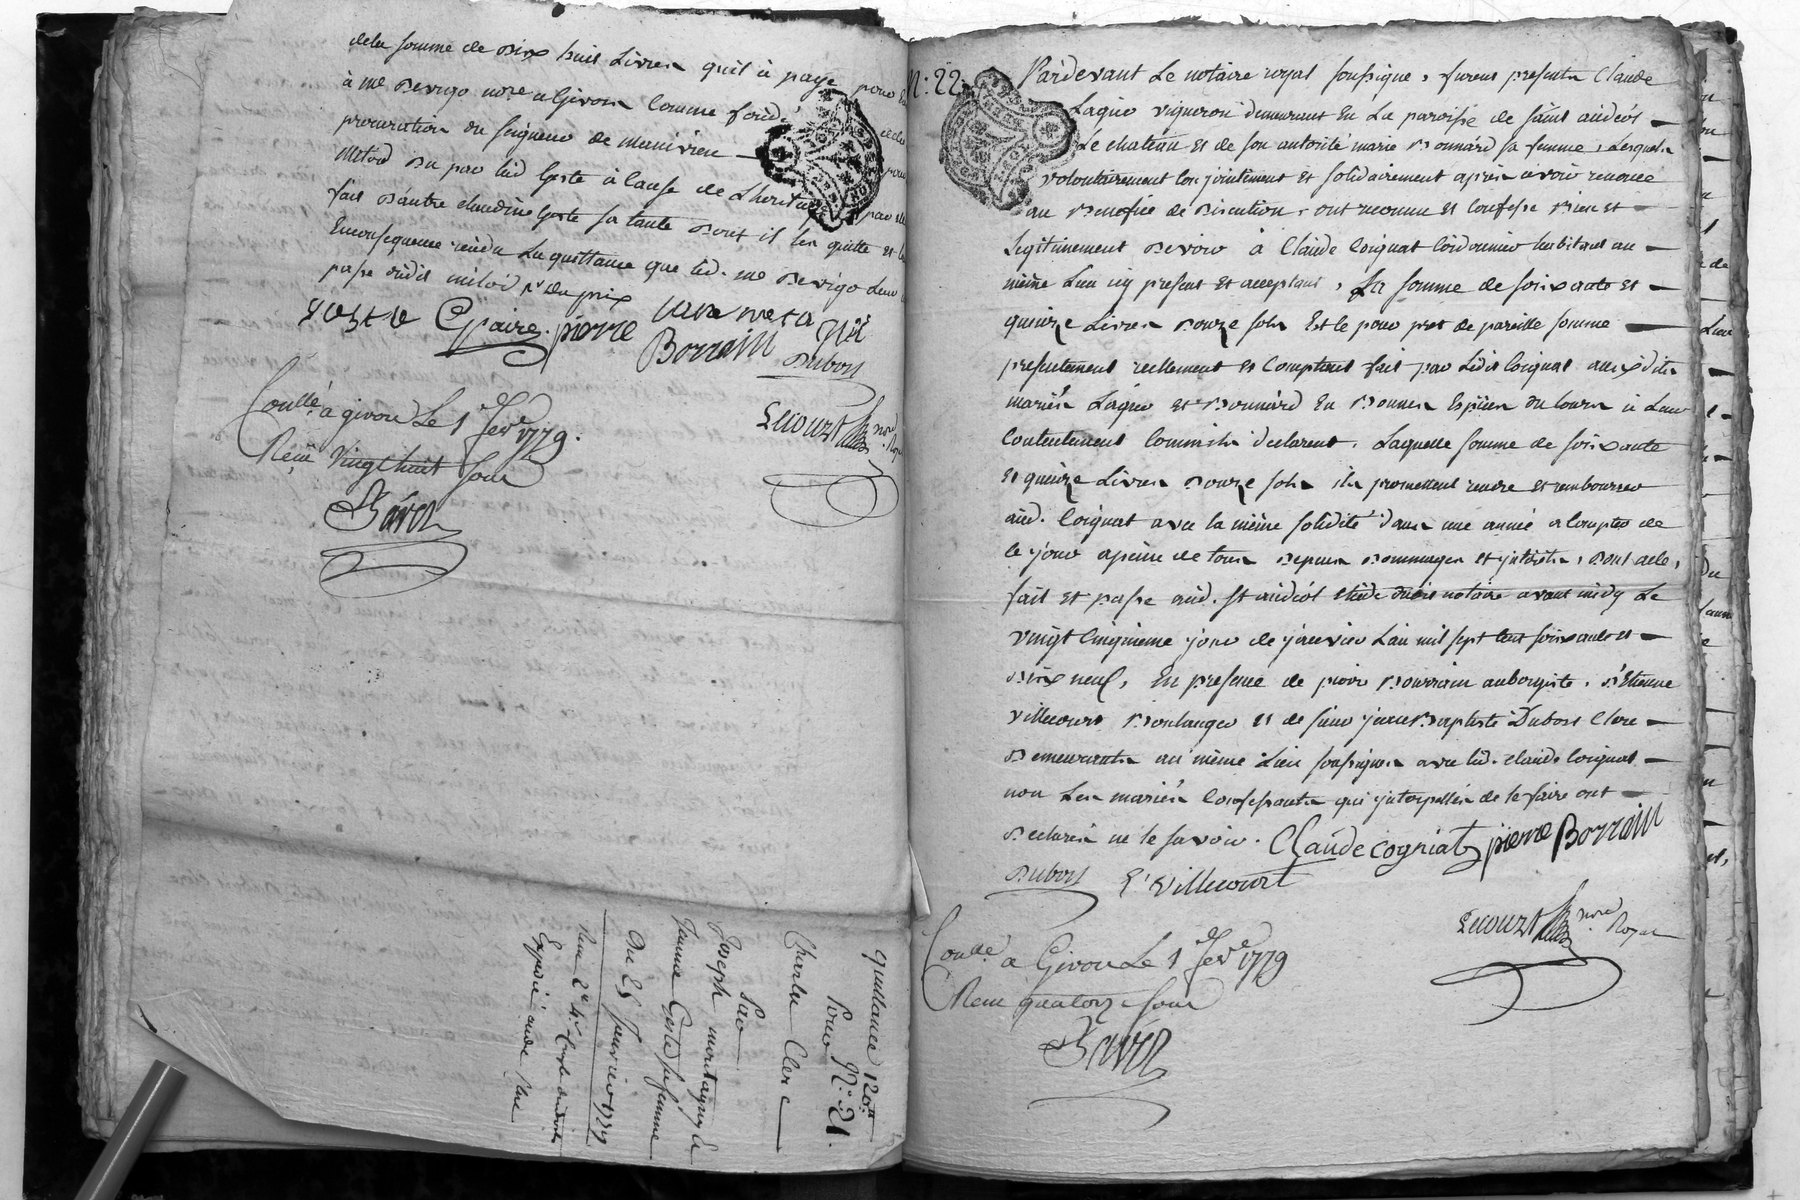 dela somme de dix huit Livres quil à payé pour
à me devigo nore a Givors comme fondé
procuration du seigneur de
par led Geste à cause de Lheritage
fait dautre claudine Geste sa tante dont il les quitte et
Enconsequence rendu La quittance que led. me devigo Leur
passe
Geste C paire. pierre Borrain
Dubost
Lecourt nore Royal
Conllé a givors Le 1 fevr 1779.
Reçu Vingt huit sous
quittance 120#
Pour N.° 21.
Charles Clerc
Par
Joseph montagny &
Jeanne Geste sa femme
Du 25 Janvier 1779
N.: 22.
Pardevant Le notaire royal soussigné, furent presents Claude
Laquo vigneron demeurant En La paroisse de saint andéol
Le chateau et de son autorité marie Bonnard sa femme, Lesquels
volontairement conjointement et solidairement après avoir renoncé
au Benefice de Discution, ont reconnu et confessé Bien et
Legitimement devoir à Claude Coignat Cordonnier habitant au
même Lieu icy present et acceptant, La somme de soixante et
quinze Livres Douze sols Et le pour pret de pareille somme
presentement reellement et comptant fait par Ledit Coignat auxdits
mariés Laquo et Bonnard En Bonnes Espèces du cours à Leur
contentement comme ils declarent, Laquelle somme de soixante
et quinze Livres Douze sols ils promettent rendre et rembourser
aud. Coignat avec la même solidité dans une année a compter de
ce jour apeine de tous Depens Dommages et jnterêts, Dont acte,
fait et passé aud. st andéol etude dudit notaire avant midy Le
vingt cinquieme jour de janvier L'an mil sept cent soixante et
Dix neuf, En presence de pierre Bourrain aubergiste, s. Etienne
villecourt Boulanger et de sieur jean Baptiste Dubost Clerc
Demeurants au même Lieu soussignés avec led. claude Coignat
non Les mariés confessants qui jnterpellés de le faire ont
Declarés ne le savoir. Claude cogniat pierre Borrain
Dubost E. villecourt
Lecourt nore Royal
Conllé a Givors Le 1 fevr 1779
Reçu quatorze sous